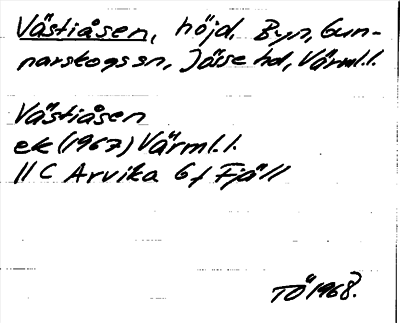 Västiåsen, höjd. Byn, Gun-
narskogs sn, Jösse hd, Värml.l.
Västiåsen
ek (1967) Värml.l.
11 C Arvika 6 f Fjäll
TÖ 1968.